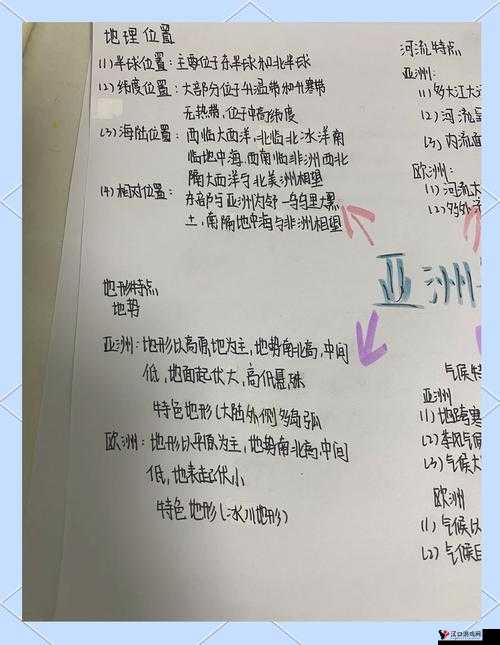 地理位置
(1)半球位置：主要位于东半球和北半球
(2)纬度位置：大部分位于北温带和北寒带
无热带，位于中高纬度
(3)海陆位置：西临大西洋，北临北冰洋南
临地中海，西南临非洲西北
隔大西洋与北美洲相望
(4)相对位置：东部与亚洲为邻 乌里大黑
土，南隔地中海与非洲相望
地形特点
地势
亚洲：地形以高原，地为主，地势南北高，中间
低，地面起伏大，高低悬殊
特色地形(大陆外侧多岛弧
欧洲：地形以平原为主，地势南北高，中间
低，地表起伏小
特色地形(冰川地形)
亚洲
河流特点
亚洲：
(1)多大江大
(2)河流呈
(3)内流
欧洲：
(1)河流
(2)多外流
气候特
亚洲
(1)地跨寒
(2)季风气候
(3)气候大
欧洲
(1)气候以
(2)气候
汉口游戏网